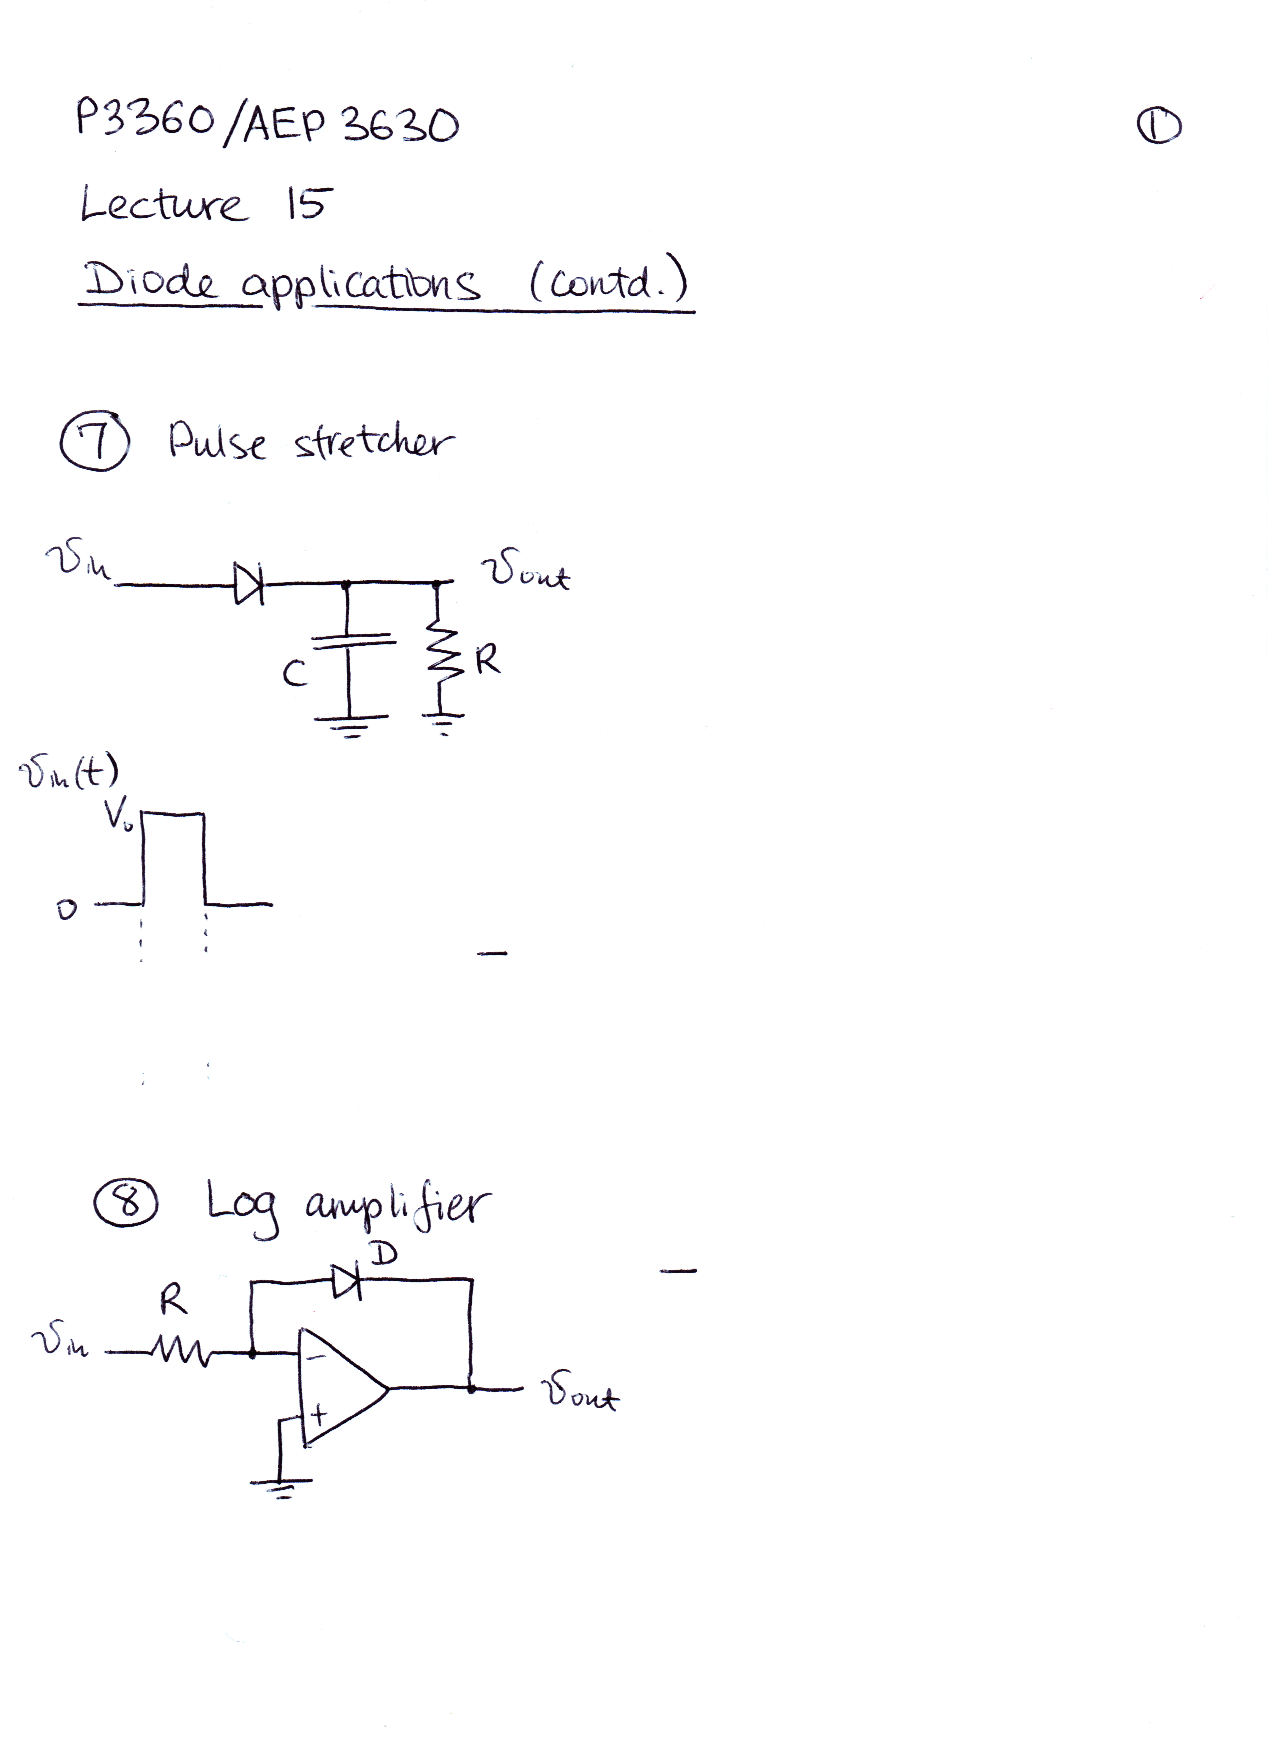 P3360/AEP 3630
①
Lecture 15
Diode applications (contd.)
⑦ Pulse stretcher
Vin
Vout
C
R
Vin(t)
V₀
0
⑧ Log amplifier
D
R
Vin
−
+
Vout